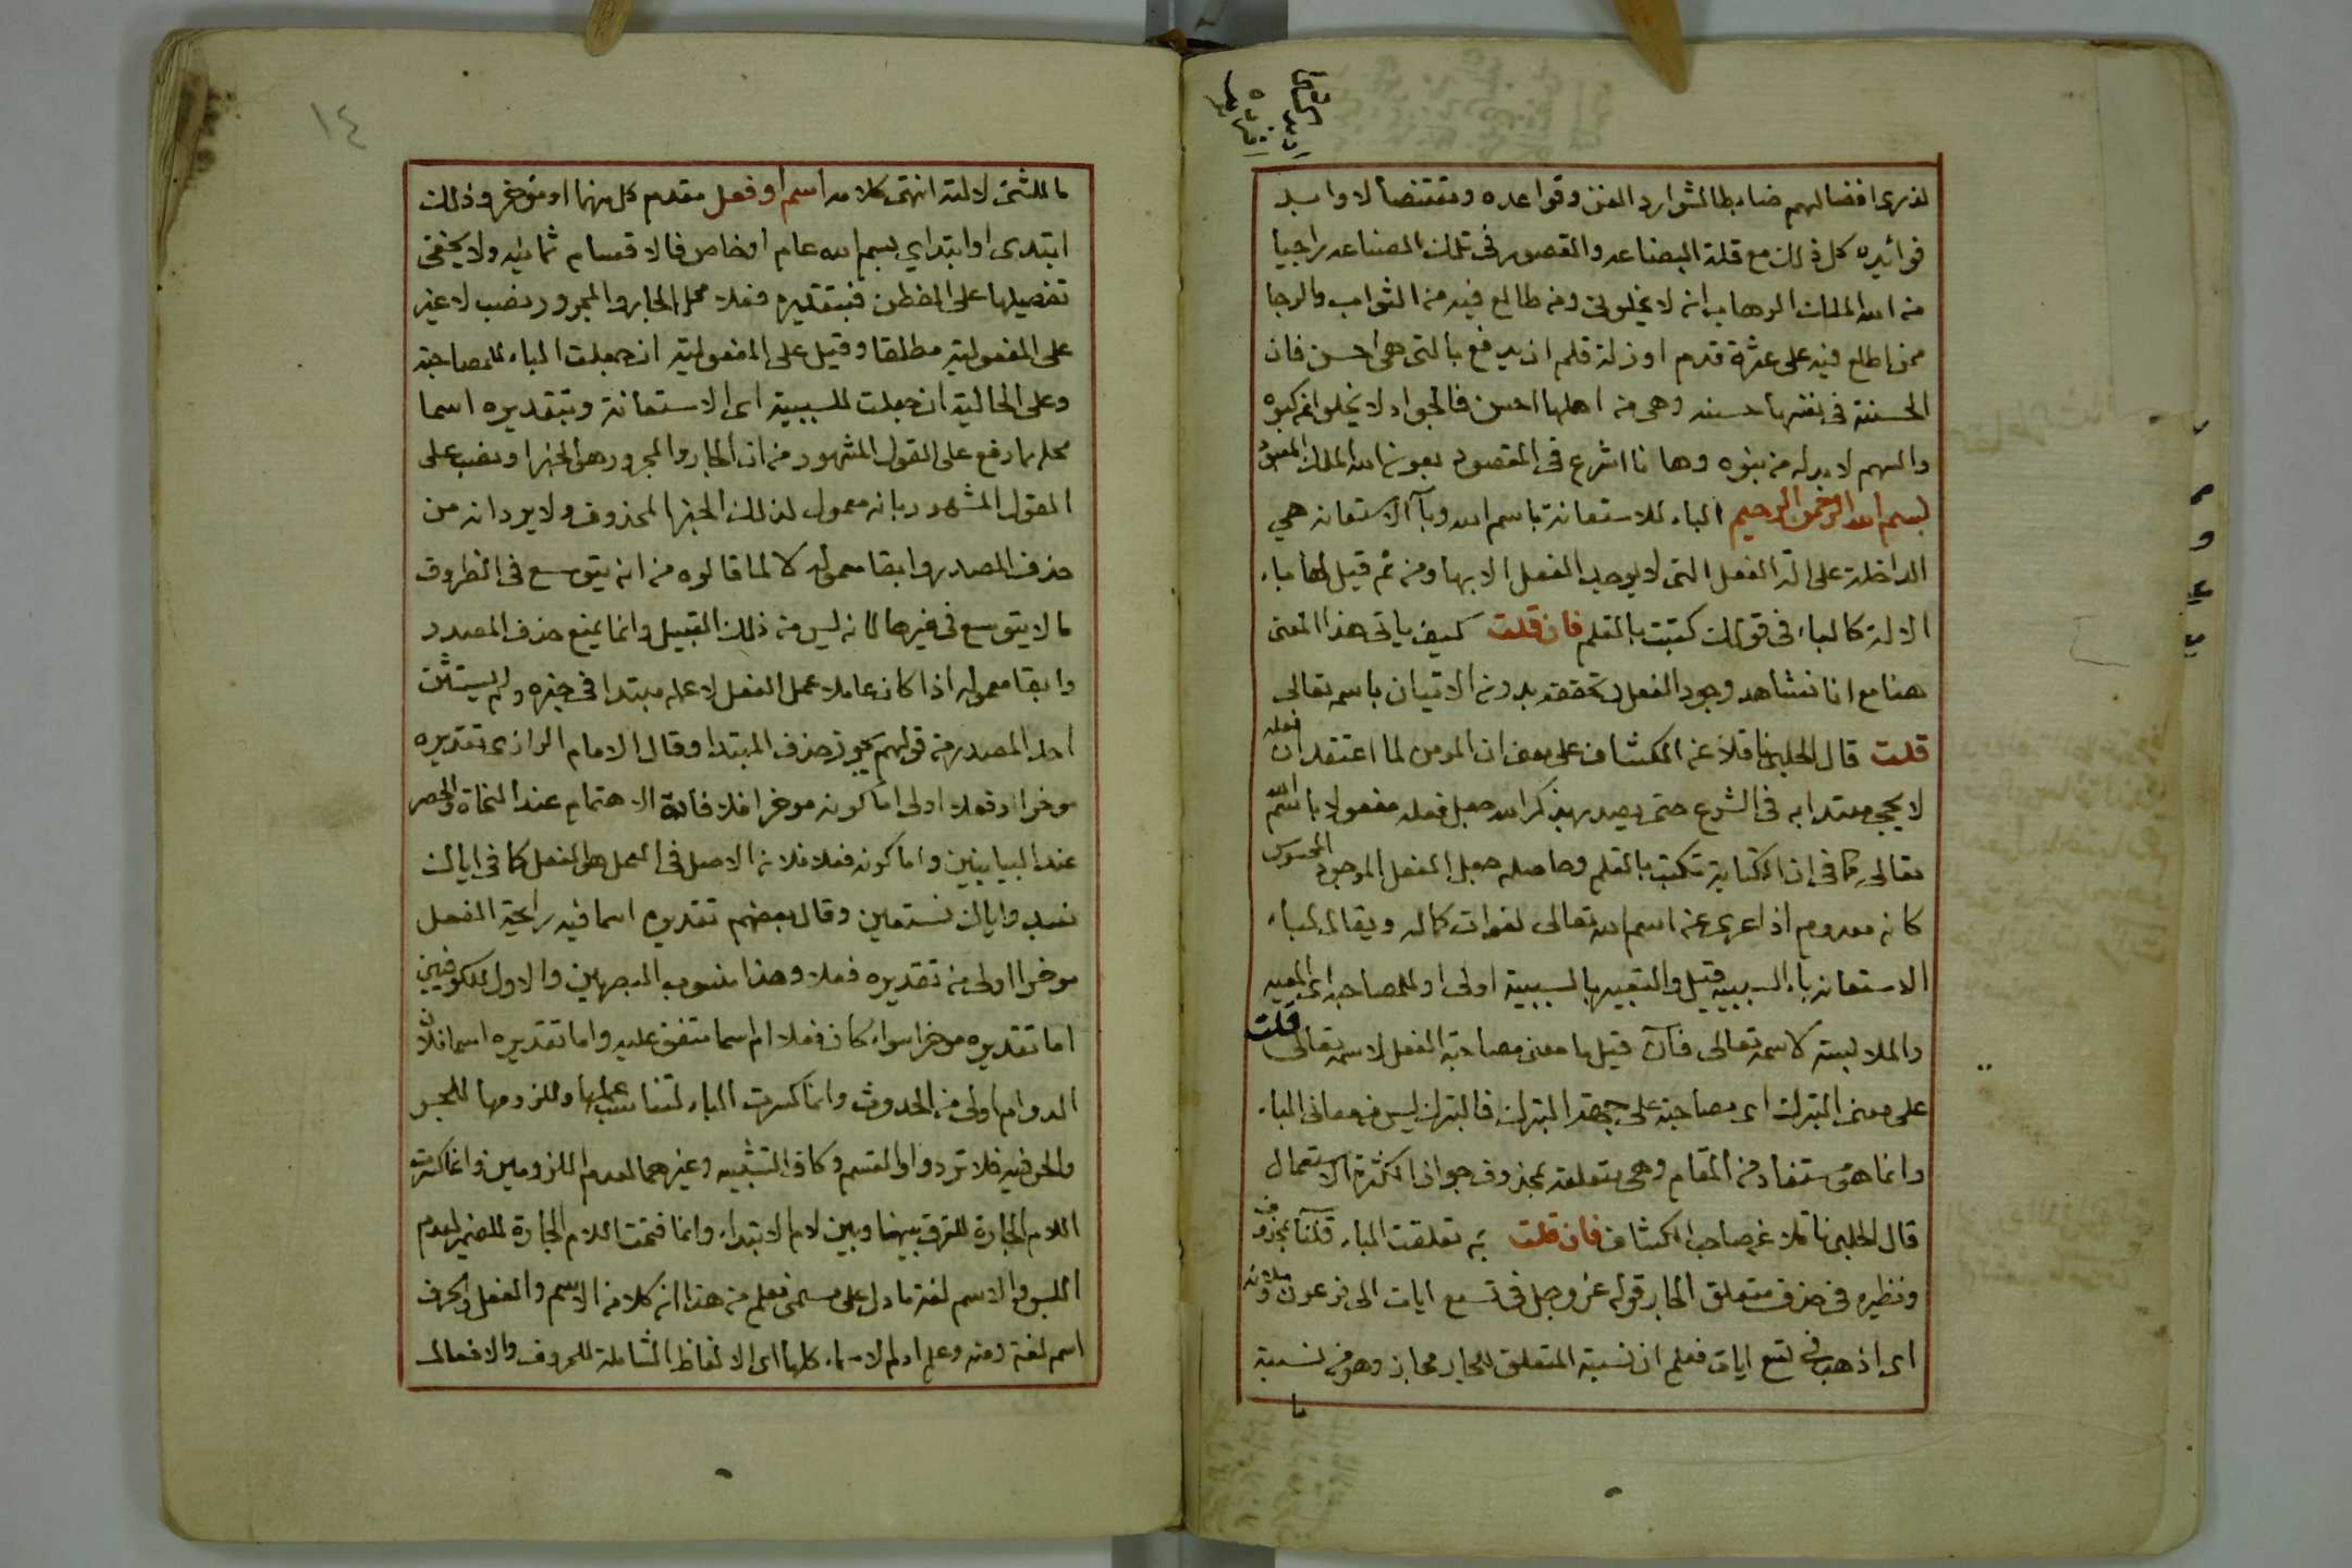 لذوى افضالهم ضابطا لشوارد الفن وقواعده ومقتنصا لاوابد
فوائده كل ذلك مع قلة البضاعه والقصور فى تلك الصناعه راجيا
من الله الملك الوهاب انه لا يخلونى ومن طالع فيه من الثواب والرجا
ممن اطلع فيه على عثرة قدم او زلة قلم ان يدفع بالتى هى احسن فان
الحسنة فى نفسها حسنه وهى من اهلها احسن فالجواد لا يخلو من كبوه
والسهم لا بد له من نبوه وها انا اشرع فى المقصود بعون الله الملك المعبود
بسم الله الرحمن الرحيم الباء للاستعانة باسم الله وبآ الاستعانه هي
الداخلة على الة الفعل التى لا يوجد الفعل الا بها ومن ثم قيل لها باء
الالة كالباء فى قولك كتبت بالقلم فان قلت كيف ياتى هذا المعنى
هنا مع انا نشاهد وجود الفعل وتحققه بدون الاتيان باسمه تعالى
قلت قال الحلبى ناقلا عن الكشاف على معنى ان المومن لما اعتقد ان فعله
لا يجى معتدا به فى الشرع حتى يصدر بذكر الله جعل فعله مفعولا باسم الله
تعالى كما فى ان الكتابة تكتب بالقلم وحاصله جعل الفعل الموجود المحسوس
كانه معدوم اذا عرى عن اسم الله تعالى لفوات كماله ويقال لباء
الاستعانه باء السببيه قيل والتعبير بالسببية اولى او للمصاحبه اى المعيه
والملابسة لاسمه تعالى فان قيل ما معنى مصاحبة الفعل لاسمه تعالى قلت
على معنى التبرك اى مصاحبة على جهة التبرك فالتبرك ليس من معانى الباء
وانما هو مستفاد من المقام وهى متعلقه بمحذوف جوازا لكثرة الاستعمال
قال الحلبى ناقلا عن صاحب الكشاف فان قلت بم تعلقت الباء قلنا بمحذوف
ونظيره فى حذف متعلق الجار قوله عز وجل فى تسع ايات الى فرعون وملائه
اى اذهب فى تسع ايات فعلم ان نسبة المتعلق للجار مجاز وهو من نسبة
ما
١٤
ما للشئ لالته انتهى كلامه اسم او فعل مقدم كل منهما او مؤخر وذلك
ابتدى او ابتداي بسم الله عام او خاص فالاقسام ثمانيه ولا يخفى
تفصيلها على الفطن فبتقديره فعلا محل الجار والمجرور نصب لا غير
على المفعولية مطلقا وقيل على المفعولية ان جعلت الباء للمصاحبة
وعلى الحالية ان جعلت للسببية اى الاستعانة وبتقديره اسما
محلهما رفع على القول المشهور من ان الجار والمجرور هو الخبر او نصب على
القول المشهور بانه معمول لذلك الخبر المحذوف ولا يرد انه من
حذف المصدر وابقا معموله لا لما قالوه من انه يتوسع فى الظروف
ما لا يتوسع فى غيرها لانه ليس من ذلك القبيل وانما يمنع حذف المصدر
وابقا معموله اذا كان عاملا عمل الفعل لا عمل مبتدا فى خبره ولم يستثن
احد المصدر من قولهم يجوز حذف المبتدا وقال الامام الرازى تقديره
موخرا وفعلا اولى اما كونه موخرا فلافادة الاهتمام عند النحاة والحصر
عند البيانيين واما كونه فعلا فلان الاصل فى العمل هو الفعل كما فى اياك
نعبد واياك نستعين وقال بعضهم تقديره اسما فيه رايحة الفعل
موخرا اولى من تقديره فعلا وهذا منسوب للبصريين والاول للكوفيين
اما تقديره موخرا سواء كان فعلا ام اسما متفق عليه واما تقديره اسما فلان
الدوام اولى من الحدوث وانما كسرت الباء لتناسب عملها وللزومها للجر
والحرفيه فلا ترد واو القسم وكاف التشبيه وغيرهما لعدم اللزومين وانما كسرت
اللام الجارة للفرق بينها وبين لام الابتداء وانما فتحت اللام الجارة للضمير لعدم
اللبس والاسم لغة ما دل على مسمى فعلم من هذا ان كلا من الاسم والفعل والحرف
اسم لغة ومنه وعلم ادم الاسماء كلها اى الالفاظ الشاملة للحروف والافعال